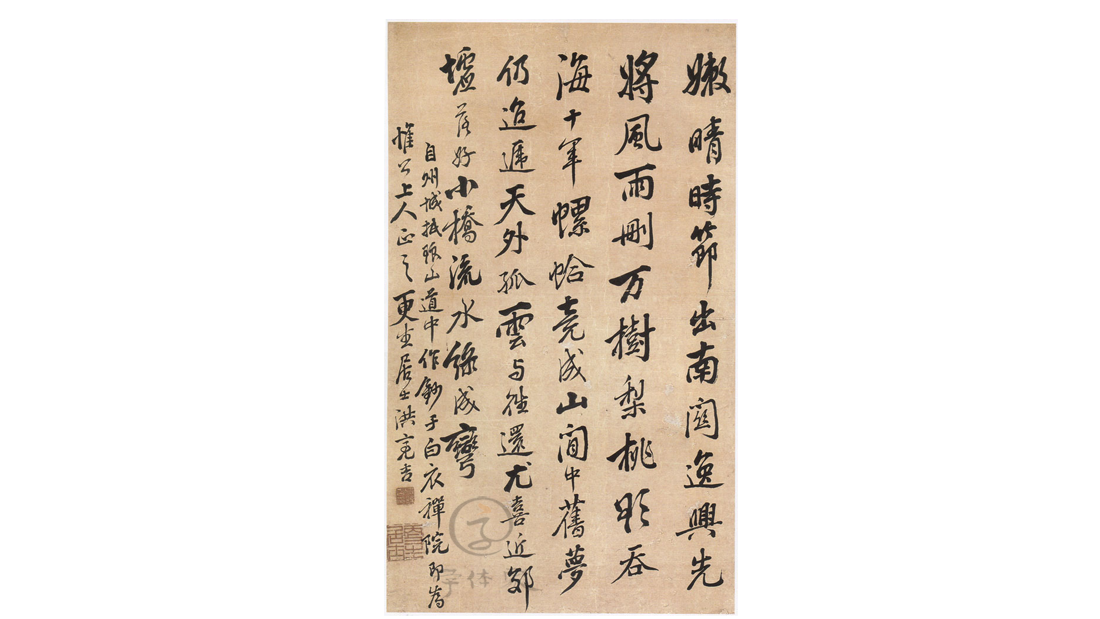 嫩晴時節出南闗逸興先
將風雨刪万樹梨桃影吞
海十年螺蛤竟成山閒中舊夢
仍迢遞天外孤雲与往還尤喜近郊
墟落好小橋流水綠成彎
自州城抵狼山道中作錄于白衣禪院即為
惟公上人正之更生居士洪亮吉
字体